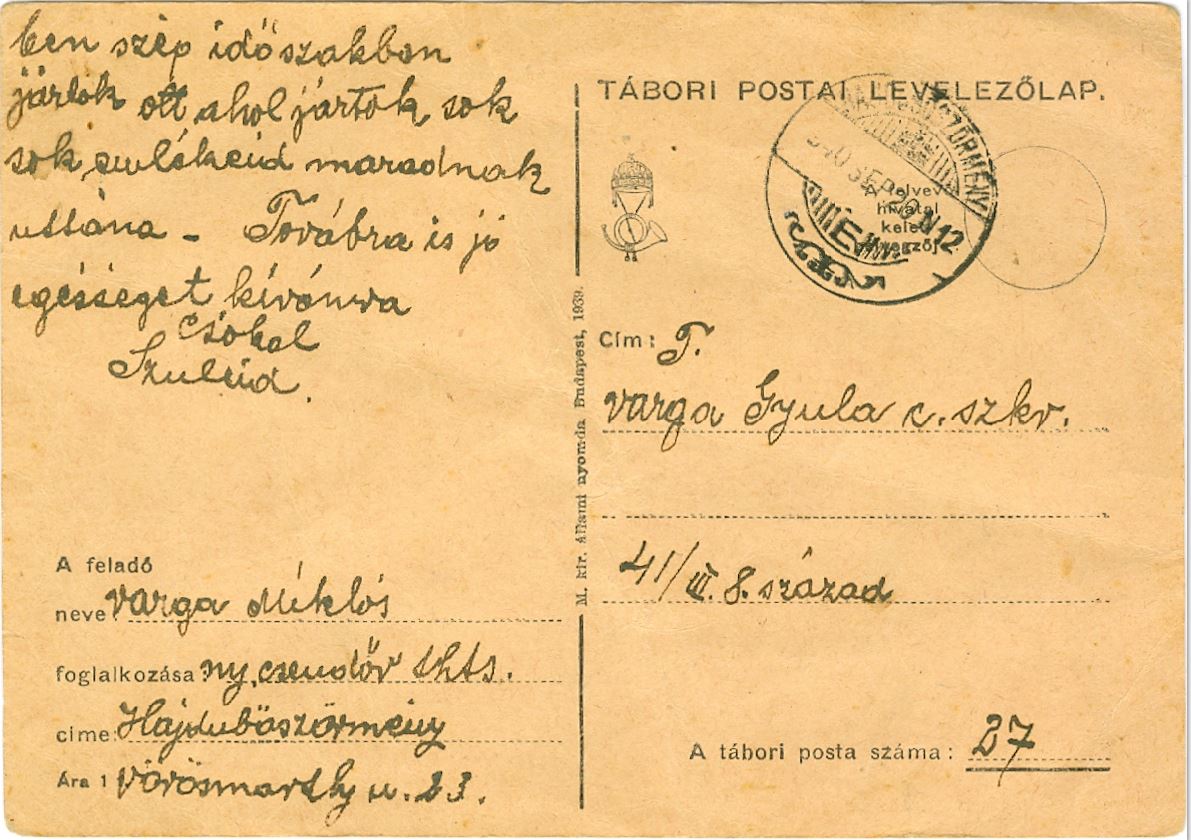 ben szép időszakban
jártok ott ahol jártok, sok
sok emlékeid maradnak
uttána - Továbra is jó
egésséget kívánva
csokol
Szuleid.
A feladó
neve: Varga Miklós
foglalkozása: ny. csendőr thts.
címe: Hajduböszörmény
Ára 1 Vörösmarthy u. 23.
M. kir. állami nyomda, Budapest, 1939.
TÁBORI POSTAI LEVELEZŐLAP.
940 SEP 20 N 12
A felvevő
hivatal
kelet
bélyegzője.
Cím: T.
Varga Gyula c. szkv.
41/III. 8. század
A tábori posta száma: 27